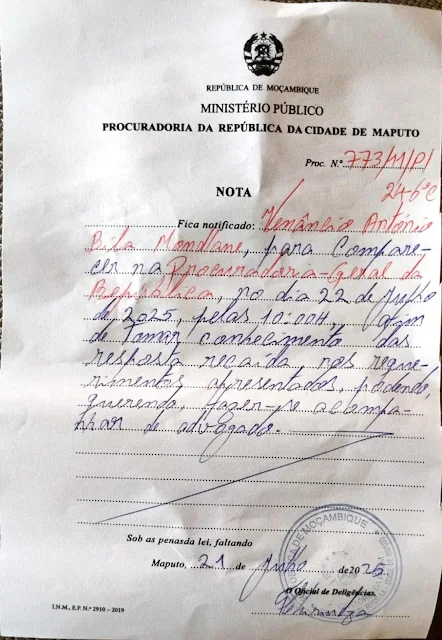 REPÚBLICA DE MOÇAMBIQUE
MINISTÉRIO PÚBLICO
PROCURADORIA DA REPÚBLICA DA CIDADE DE MAPUTO
Proc. N.º 773/11/P/
24-6ªC
NOTA
Fica notificado: Venâncio António
Bila Mondlane, para Compare-
cer na Procuradoria-Geral da
República, no dia 22 de Julho
de 2025, pelas 10:00H, Afim
de Tomar conhecimento das
resposta recaída nos reque-
rimentos apresentados, podendo,
querendo, fazer-se acompa-
nhar de advogado.-
Sob as penasda lei, faltando
Maputo, 21 de Julho de 2025
O Oficial de Deligências,
I.N.M., E.P. N.º 2910 – 2019
DE MOÇAMBIQUE